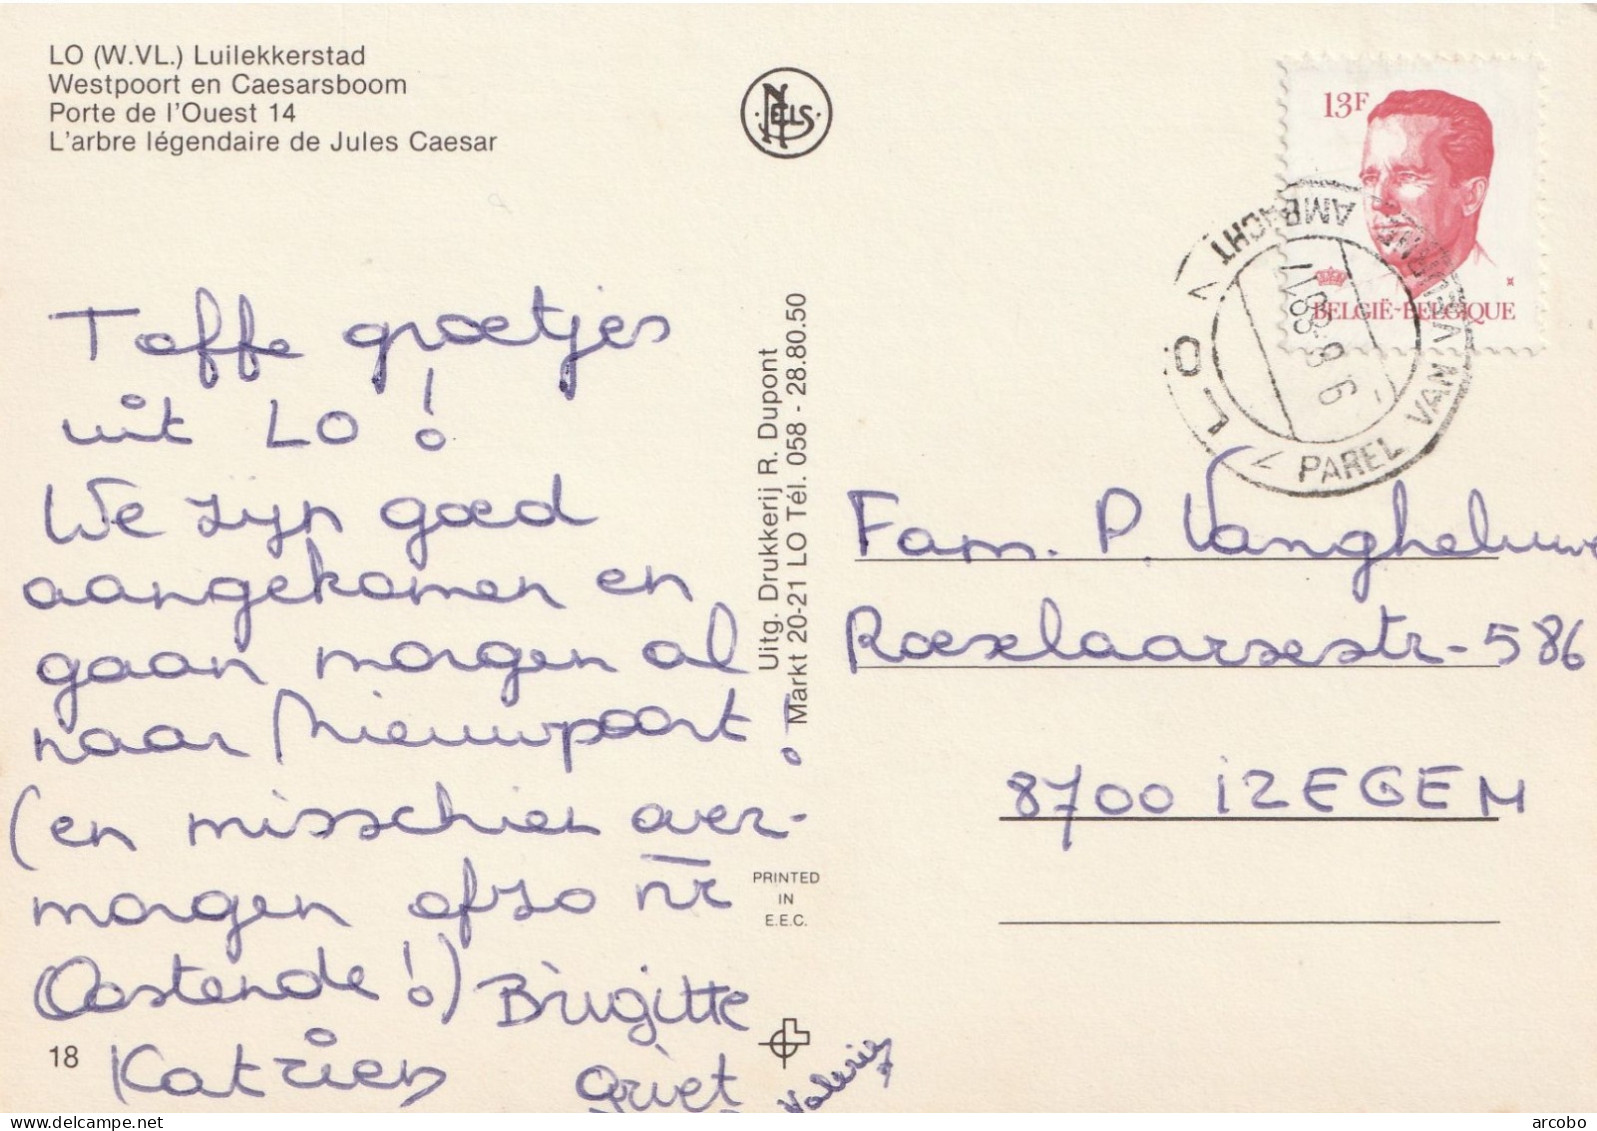 LO (W.VL.) Luilekkerstad
Westpoort en Caesarsboom
Porte de l'Ouest 14
L'arbre légendaire de Jules Caesar
NELS
13F
BELGIË-BELGIQUE
LO
PAREL VAN VEURNE AMBACHT
Toffe groetjes
uit LO!
We zijn goed
aangekomen en
gaan morgen al
naar Nieuwpoort!
(en misschien over-
morgen ofzo nr
Oostende!) Brigitte
Katrien
Griet
Valerie
18
Uitg. Drukkerij R. Dupont
Markt 20-21 LO Tél. 058 - 28.80.50
PRINTED
IN
E.E.C.
Fam. P. Vangheluwe
Roeselaarsestr-586
8700 IZEGEM
arcobo